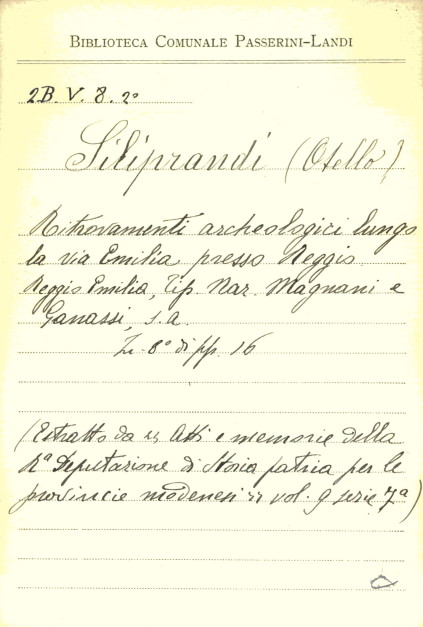 BIBLIOTECA COMUNALE PASSERINI-LANDI
2B. V. 8. 2º
Siliprandi (Otello)
Ritrovamenti archeologici lungo
la via Emilia presso Reggio.
Reggio Emilia, Tip. Naz. Magnani e
Ganassi, s.a.
In 8º di pp. 16
(Estratto da "Atti e memorie della
Rª Deputazione di Storia patria per le
provincie modenesi" vol. 9 serie 7ª)